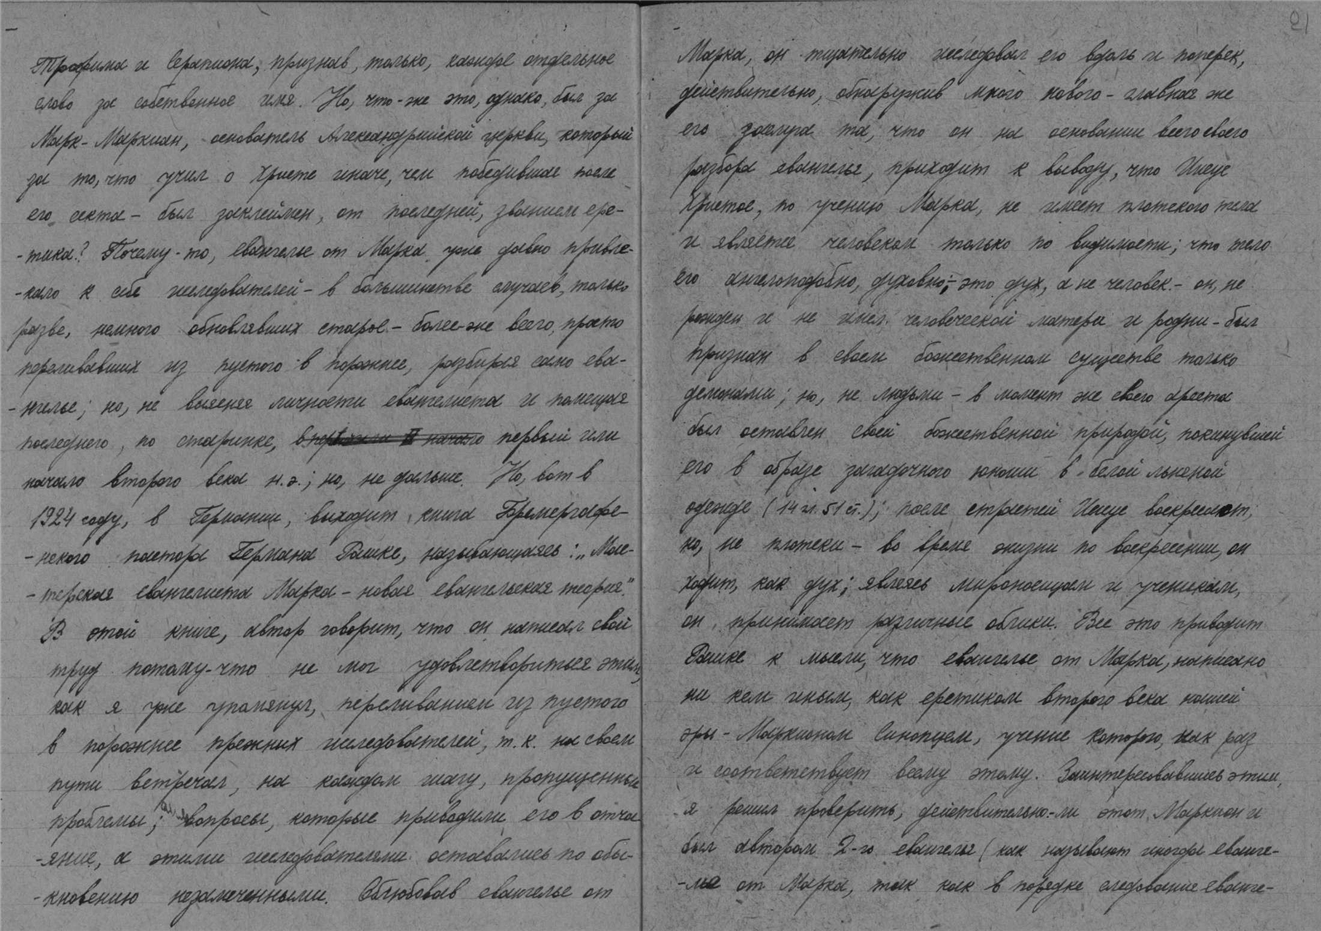 Трофима и Серапиона, признав, только, каждое отдельное
слово за собственное имя. Но, что-же это, однако, был за
Марк-Маркиан, - основатель Александрийской церкви, который
за то, что учил о Христе иначе, чем победившая после
его, секта - был заклеймен, от последней, званием ере-
-тика? Почему-то, евангелье от Марка уже давно привле-
-кало к себе исследователей - в большинстве случаев, только
разве, немного обновлявших старое - более-же всего, просто
переливавших из пустого в порожнее, разбирая само ева-
-нгелье; но, не выясняя личности евангелиста и помещая
последнего, по старинке, в первый или
начало второго века н.э.; но, не дальше. Но, вот в
1924 году, в Германии, выходит книга Бремергафе-
-нского пастора Германа Рашке, называющаяся: „Мас-
-терская евангелиста Марка - новая евангельская теория".
В этой книге, автор говорит, что он написал свой
труд потому-что не мог удовлетвориться этим,
как я уже упомянул, переливанием из пустого
в порожнее прежних исследователей, т.к. на своем
пути встречал, на каждом шагу, пропущенные
проблемы; вопросы, которые приводили его в отча-
-яние, а этими исследователями оставались по обы-
-кновению незамеченными. Облюбовав евангелье от
21
Марка, он тщательно исследовал его вдоль и поперек,
действительно, обнаружив много нового - главная же
его заслуга та, что он на основании всего своего
разбора евангелья, приходит к выводу, что Иисус
Христос, по учению Марка, не имеет плотского тела
и является человеком только по видимости; что тело
его ангелоподобно, духовно; - это дух, а не человек - он, не
рожден и не имел человеческой матери и родни - был
признан в своем божественном существе только
демонами; но, не людьми - в момент же своего ареста
был оставлен своей божественной природой, покинувшей
его в образе загадочного юноши в белой льняной
одежде (14 гл. 51 ст.); после страстей Иисус воскресает,
но, не плотски - во время жизни по воскресении, он
ходит, как дух; являясь мироносицам и ученикам,
он, принимает различные облики. Все это приводит
Рашке к мысли, что евангелье от Марка, написано
ни кем иным, как еретиком второго века нашей
эры - Маркионом Синопцем, учение которого, как раз
и соответствует всему этому. Заинтересовавшись этим,
я решил проверить, действительно-ли этот Маркион и
был автором 2-го евангелья (как называют иногда еванге-
-лие от Марка, так как в порядке следования еванге-